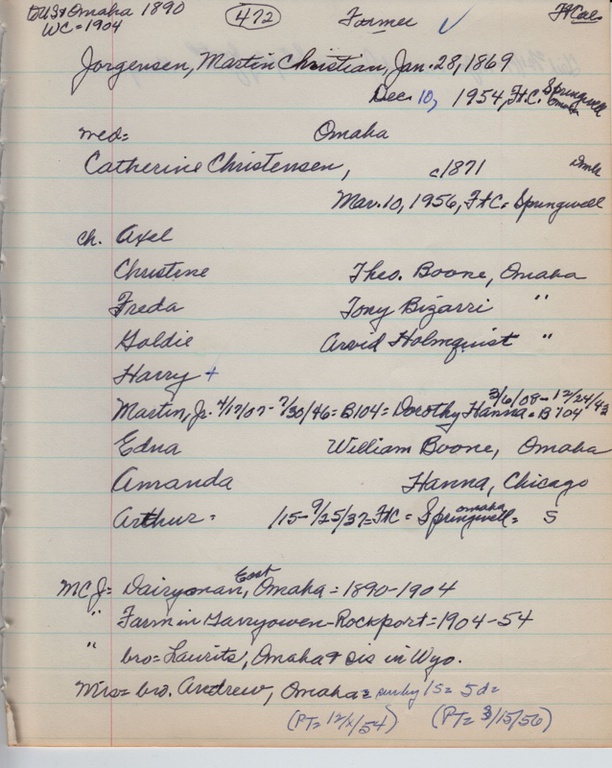 to US & Omaha 1890 472 Former ✓
WC = 1904
Jorgensen, Martin Christian, Jan. 28, 1869
Dec. 10, 1954, FtC. Springwell Omaha
med= Omaha
Catherine Christensen, c1871 Dmk
Mar. 10, 1956, FtC = Springwell
ch. Axel
Christine Theo. Boone, Omaha
Freda Tony Bizarri "
Goldie Arvid Holmquist "
Harry +
Martin, Jr. 4/17/07 - 7/30/46 = B104 = Dorothy Hanna = B104 3/6/08 - 12/24/43
Edna William Boone, Omaha
Amanda Hanna, Chicago
Arthur = /15 - 9/25/37 = FtC = Springwell = Omaha S
MCJ = Dairyman, East Omaha = 1890-1904
" Farm in Garryowen-Rockport = 1904-54
" bro = Laurits, Omaha & sis in Wyo.
Mrs = bro. Andrew, Omaha = 1s = 5d =
(PT = 12/x/54) (PT = 3/15/56)